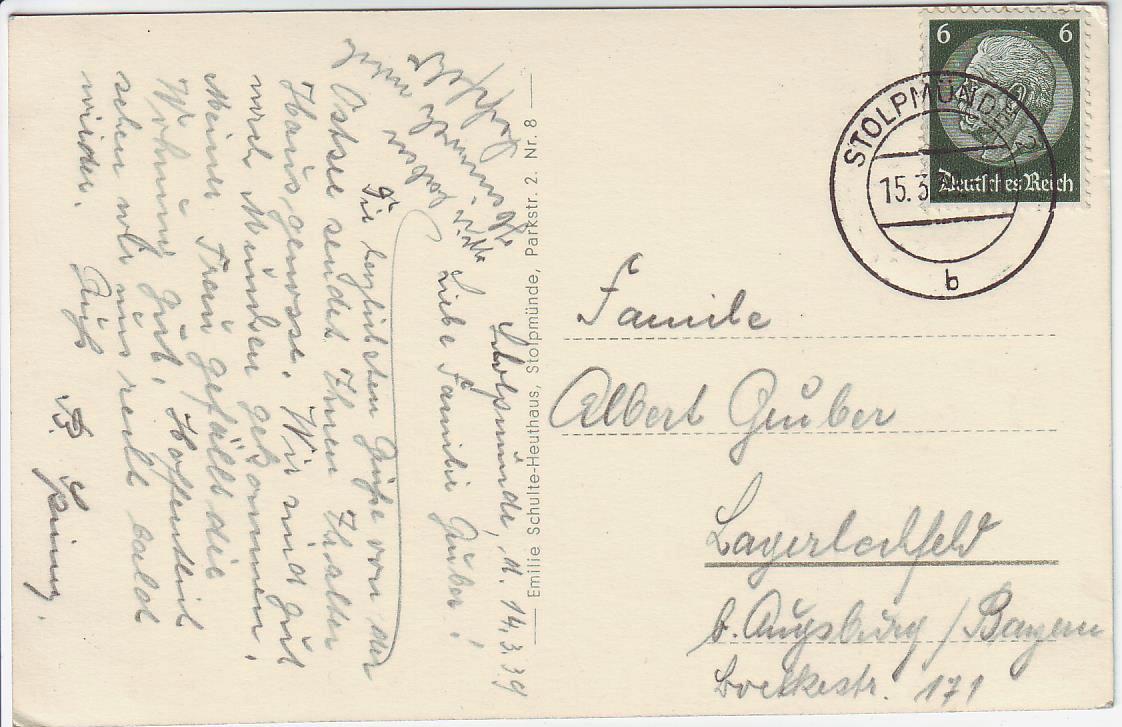 Stolpmünde, d. 14.3.39
Liebe Familie Gruber!
Die herzlichsten Grüße von der
Ostsee sendet Ihnen
Haus genosse. Wir sind gut
nach gekommen,
Meiner Frau gefällt die
Wohnung gut. Hoffentlich
sehen wir uns recht bald
wieder.
Wir haben
Emilie Schulte-Heuthaus, Stolpmünde, Parkstr. 2. Nr. 8
6 6
Deutsches Reich
STOLPMÜNDE
15.3.
b
Familie
Albert Gruber
Lagerlechfeld
b. Augsburg / Bayern
Boelkestr. 171